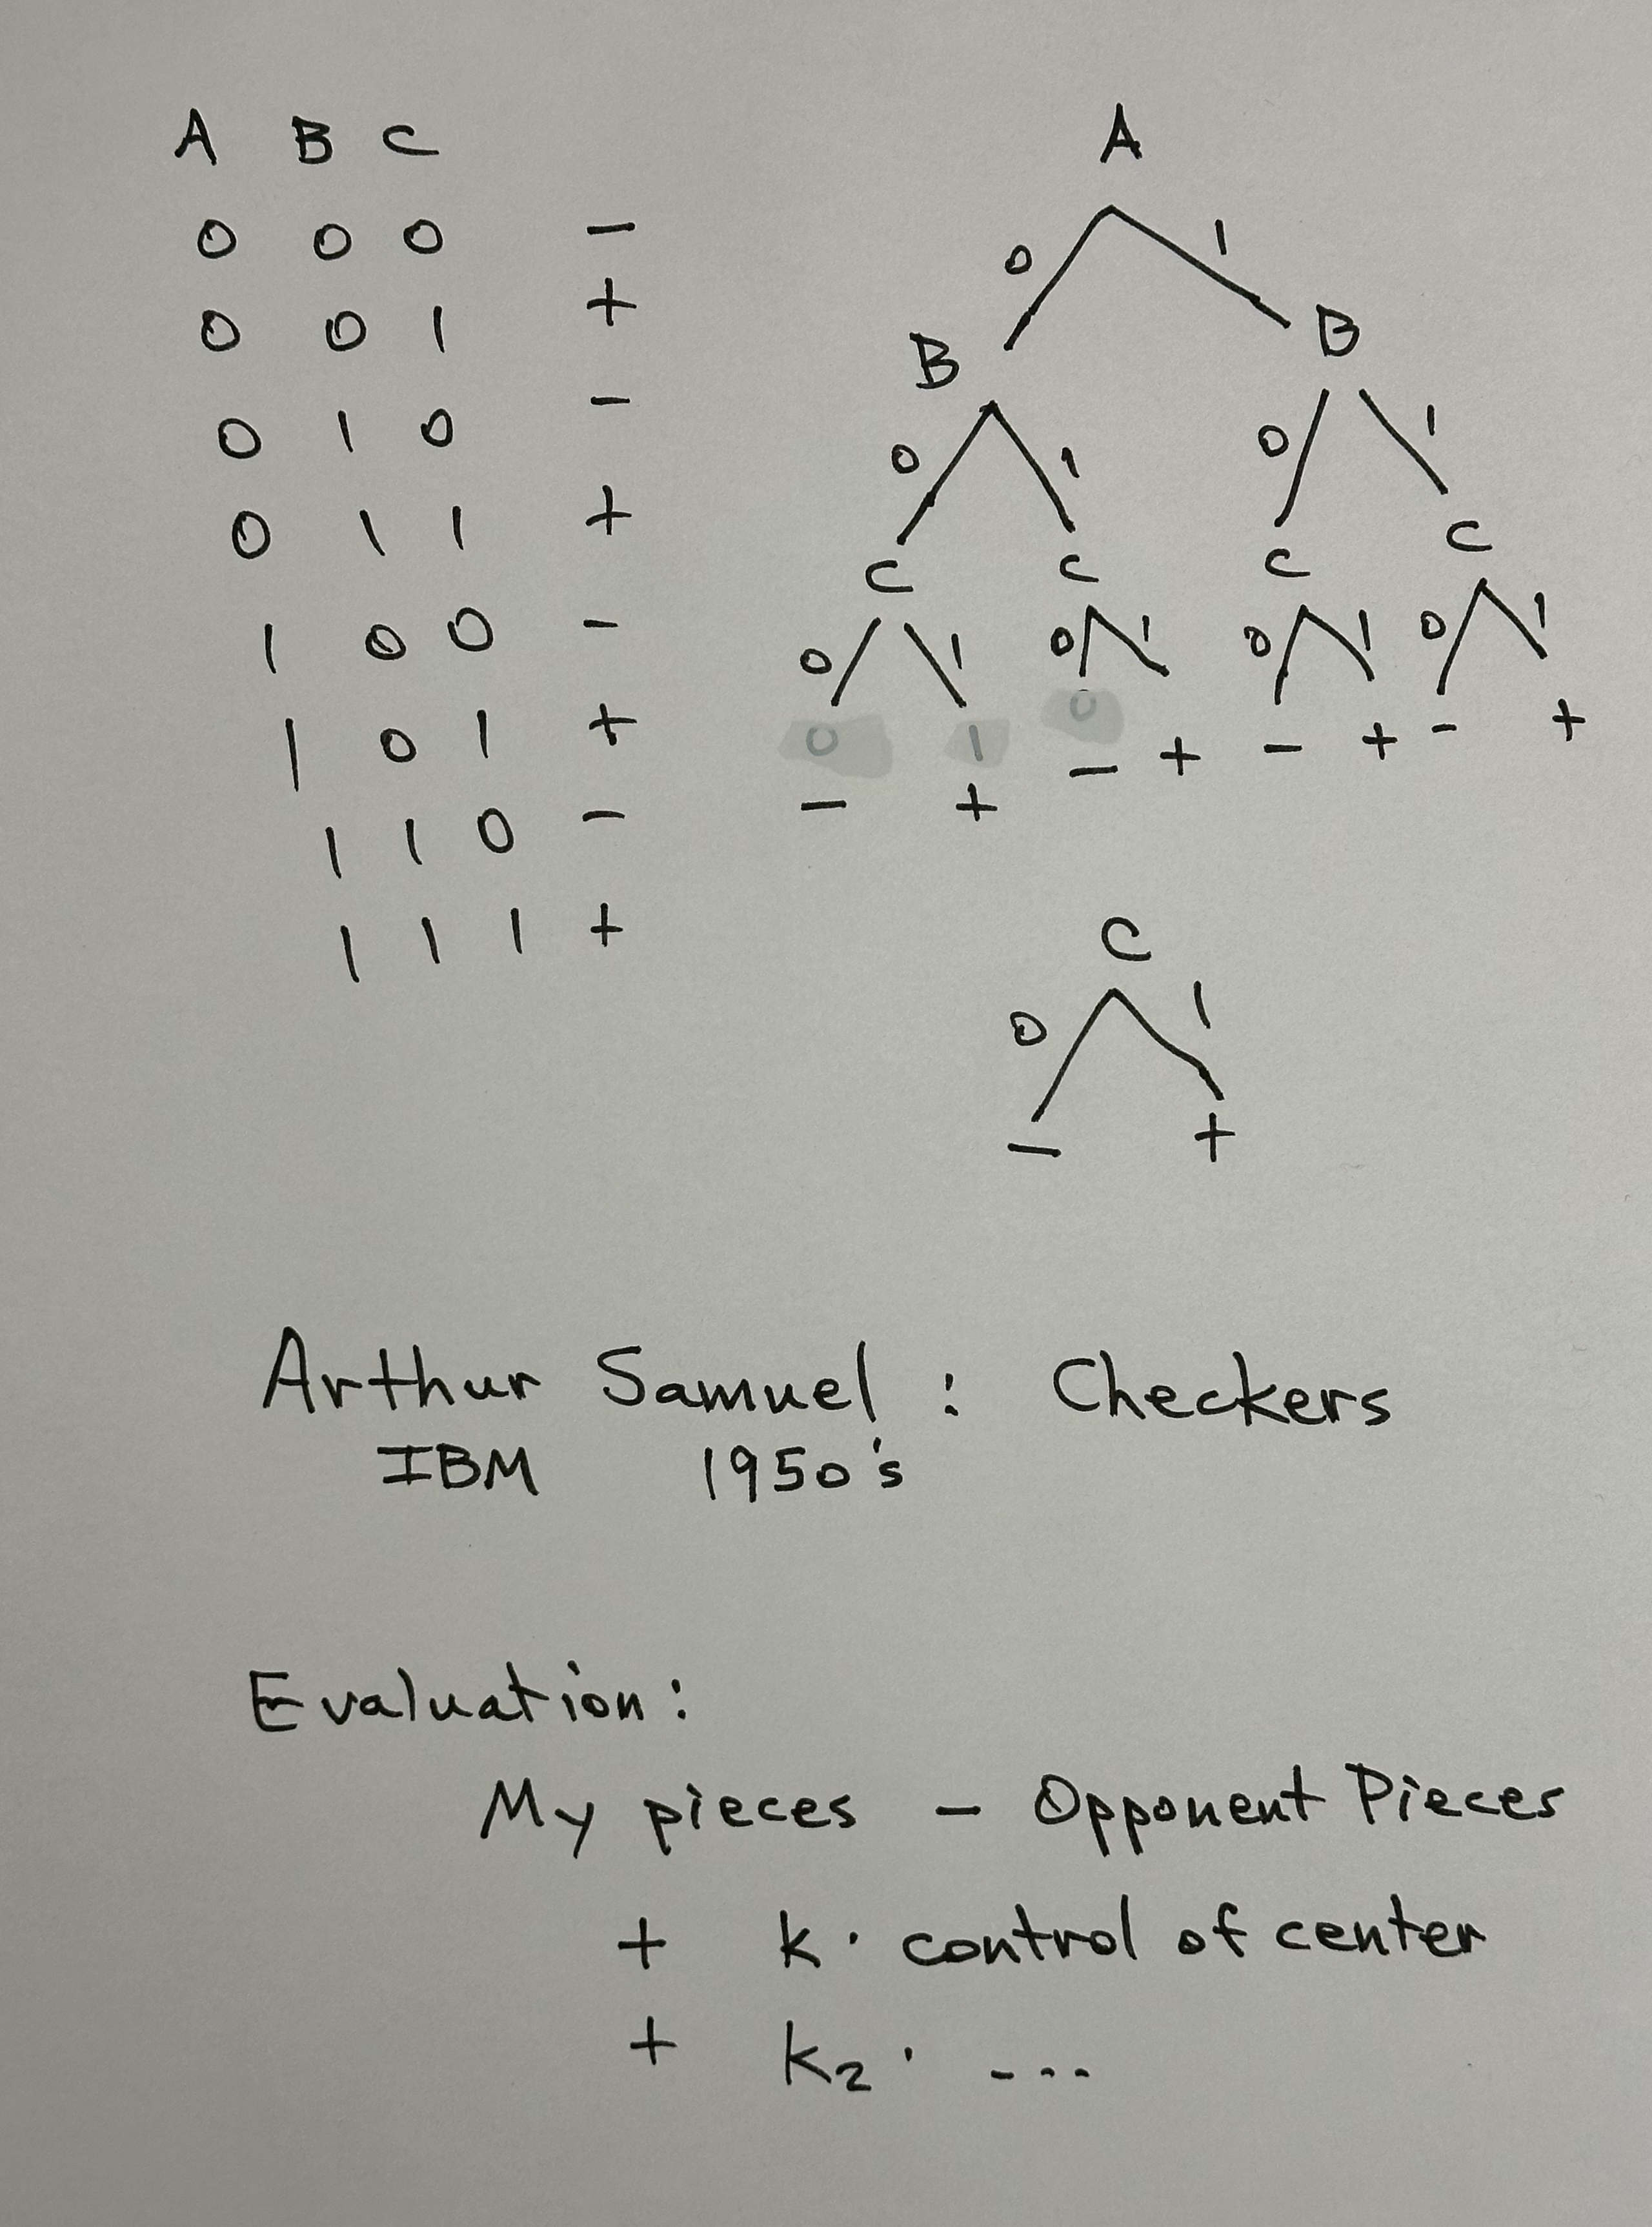 A B C
0 0 0 −
0 0 1 +
0 1 0 −
0 1 1 +
1 0 0 −
1 0 1 +
1 1 0 −
1 1 1 +
A
0 1
B B
0 1 0 1
C C C C
0 1 0 1 0 1 0 1
0 1 0
− + − + − + − +
C
0 1
− +
Arthur Samuel : Checkers
IBM 1950's
Evaluation:
My pieces − Opponent Pieces
+ k · control of center
+ k₂ · ---